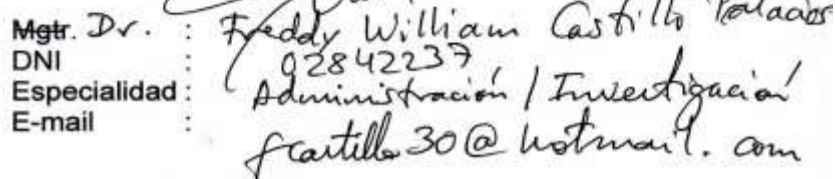 Mgtr. Dr. : Freddy William Castillo Palacios
DNI : 02842237
Especialidad : Administración / Investigación
E-mail : fcastillo30@hotmail.com